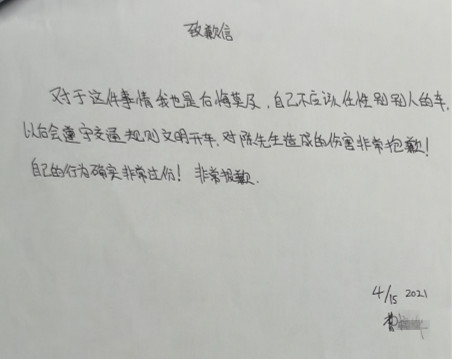 致歉信
对于这件事情我也是后悔莫及,自己不应该任性别别人的车,
以后会遵守交通规则文明开车,对陈先生造成的伤害非常抱歉!
自己的行为确实非常过份!非常抱歉.
4/15 2021
曹